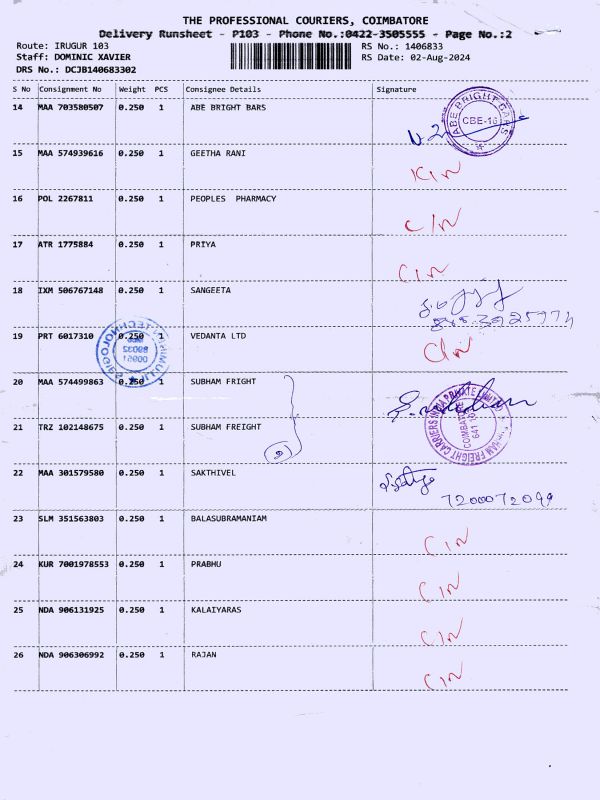 THE PROFESSIONAL COURIERS, COIMBATORE
Delivery Runsheet - P103 - Phone No.:0422-3505555 - Page No.:2
Route: IRUGUR 103 RS No.: 1406833
Staff: DOMINIC XAVIER RS Date: 02-Aug-2024
DRS No.: DCJB140683302
S No Consignment No Weight PCS Consignee Details Signature
14 MAA 703580507 0.250 1 ABE BRIGHT BARS
ABE BRIGHT BARS
CBE-16
15 MAA 574939616 0.250 1 GEETHA RANI
16 POL 2267811 0.250 1 PEOPLES PHARMACY C/N
17 ATR 1775884 0.250 1 PRIYA C/N
18 IXM 506767148 0.250 1 SANGEETA
19 PRT 6017310 0.250 1 VEDANTA LTD C/N
20 MAA 574499863 0.250 1 SUBHAM FRIGHT
21 TRZ 102148675 0.250 1 SUBHAM FREIGHT
COIMBATORE
22 MAA 301579580 0.250 1 SAKTHIVEL
7200072099
23 SLM 351563803 0.250 1 BALASUBRAMANIAM C/N
24 KUR 7001978553 0.250 1 PRABHU C/N
25 NDA 906131925 0.250 1 KALAIYARAS C/N
26 NDA 906306992 0.250 1 RAJAN C/N